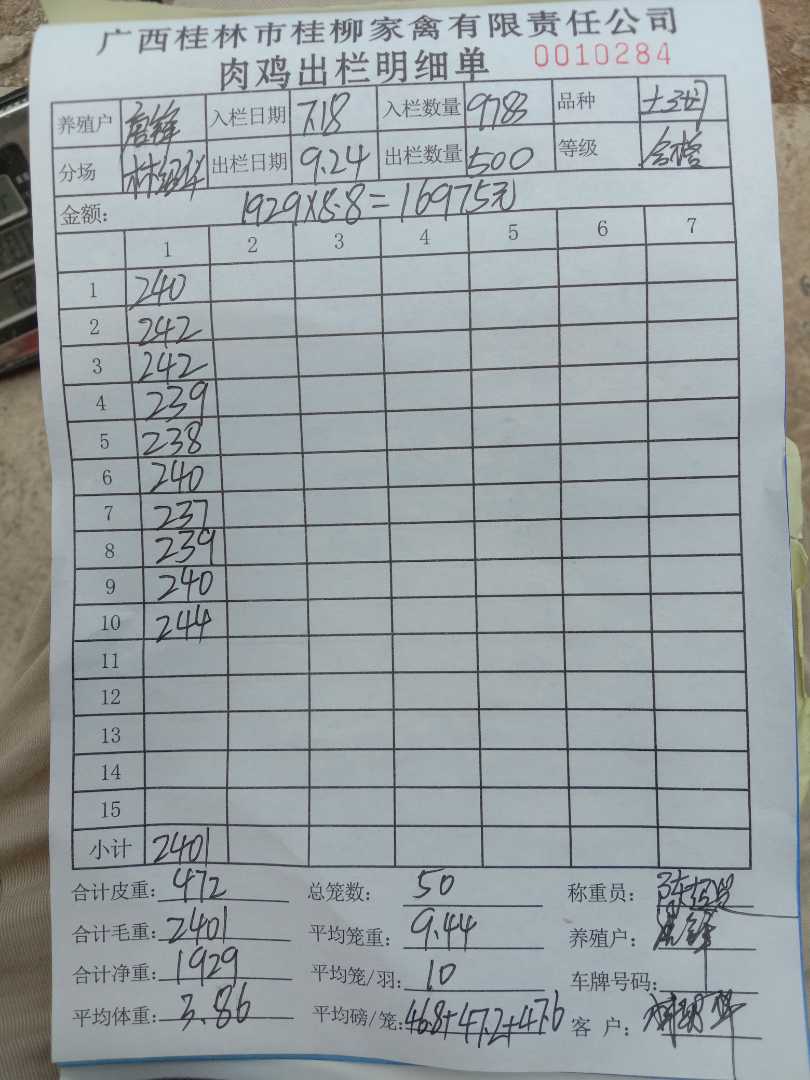 广西桂林市桂柳家禽有限责任公司
肉鸡出栏明细单 0010284
养殖户 唐锋 入栏日期 7.18 入栏数量 9783 品种 土3号
分场 出栏日期 9.24 出栏数量 500 等级 合格
金额: 1929×8.8=16975元
1 2 3 4 5 6 7
1 240
2 242
3 242
4 239
5 238
6 240
7 237
8 239
9 240
10 244
11
12
13
14
15
小计 2401
合计皮重: 472 总笼数: 50 称重员:
合计毛重: 2401 平均笼重: 9.44 养殖户: 唐锋
合计净重: 1929 平均笼/羽: 10 车牌号码:
平均体重: 3.86 平均磅/笼: 46.8+47.2+47.6 客 户: